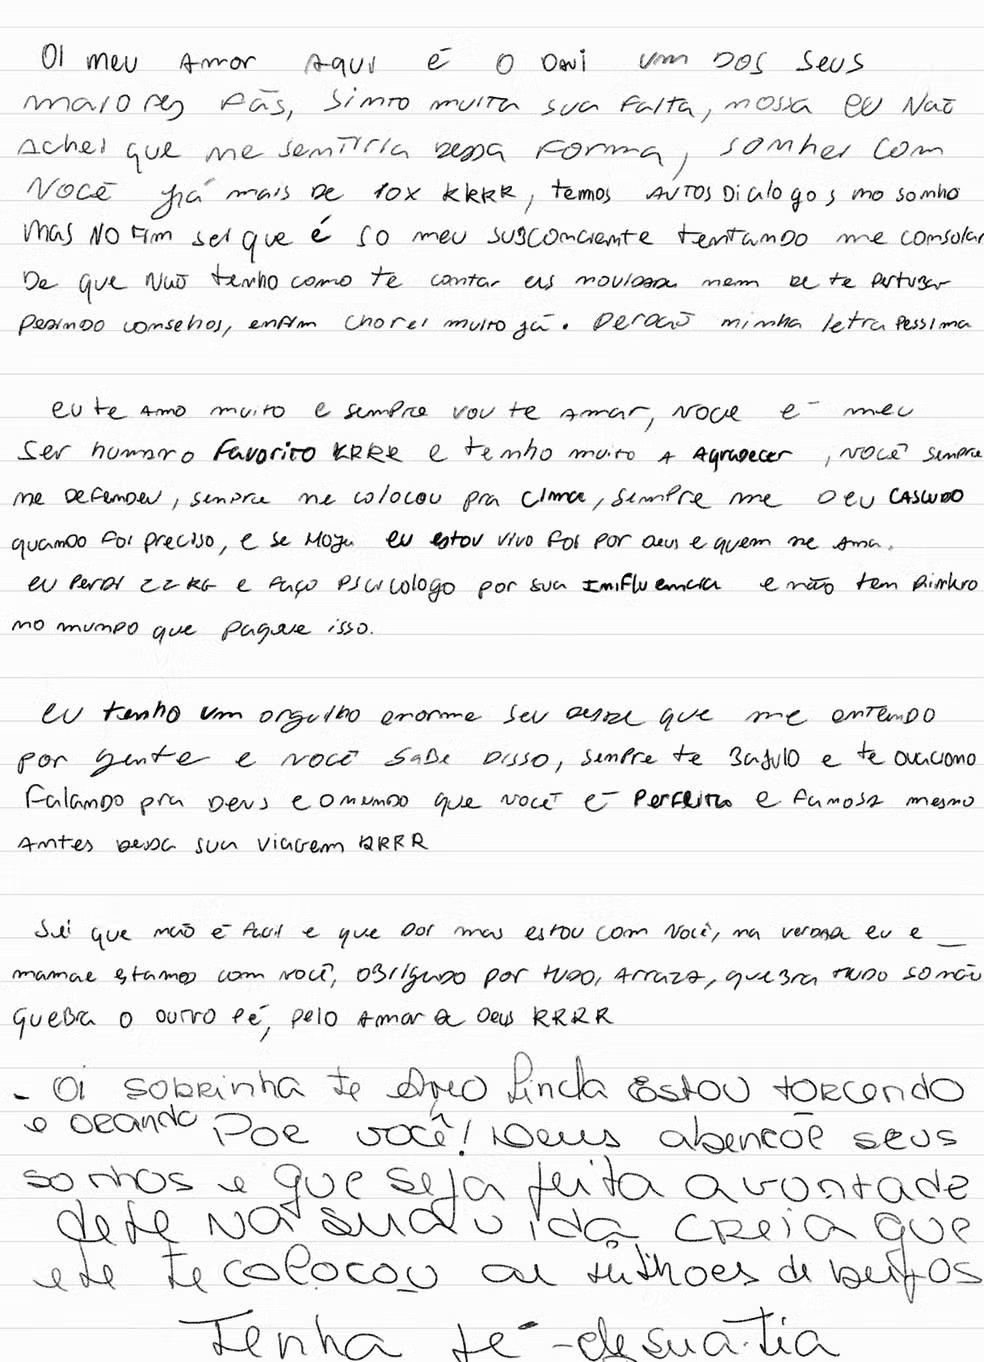 OI meu Amor Aqui é o Davi um DOS seus
maiores Fãs, sinto muita sua falta, nossa eu Naõ
Achei que me sentiria dessa Forma, sonhei com
Você já mais De 10x KRRR, temos AUTOS Dialogos no sonho
mas NO Fim sei que é so meu subconciente tentando me consolar
De que Naõ tenho como te contar as novidades nem de te Pertubar
Pedindo conselhos, enfim chorei muito já. Perdaõ minha letra Pessima
eu te Amo muito e sempre vou te Amar, voce é meu
Ser humano Favorito KRRR e tenho muito A Agradecer, você sempre
me Defendeu, sempre me colocou pra cima, sempre me Deu CASCUDO
quando Foi preciso, e se Hoje eu estou vivo Foi por Deus e quem me Ama.
eu Perdi 22 KG e Faço Psicologo por sua Imfluencia e não tem Dinhero
no mundo que pague isso.
eu tenho um orgulho enorme seu desde que me entendo
por gente e você Sabe Disso, sempre te Bajulo e te ovaciono
Falando pra Deus e o mundo que você é Perfeita e Famosa mesmo
Antes dessa sua viagem KRRR
Sei que não é Facil e que Doi mas estou com você, na verdade eu e
mamae estamos com você, obrigado por tudo, Arraza, quebra tudo só não
quebra o outro Pé, pelo Amor de Deus RRRR
- Oi sobrinha te Amo linda Estou torcendo
e orando Por você! Deus abençoe seus
sonhos e que seja feita a vontade
dele na sua vida creia que
ele te colocou ai milhoes de beijos
Tenha fé - de sua tia